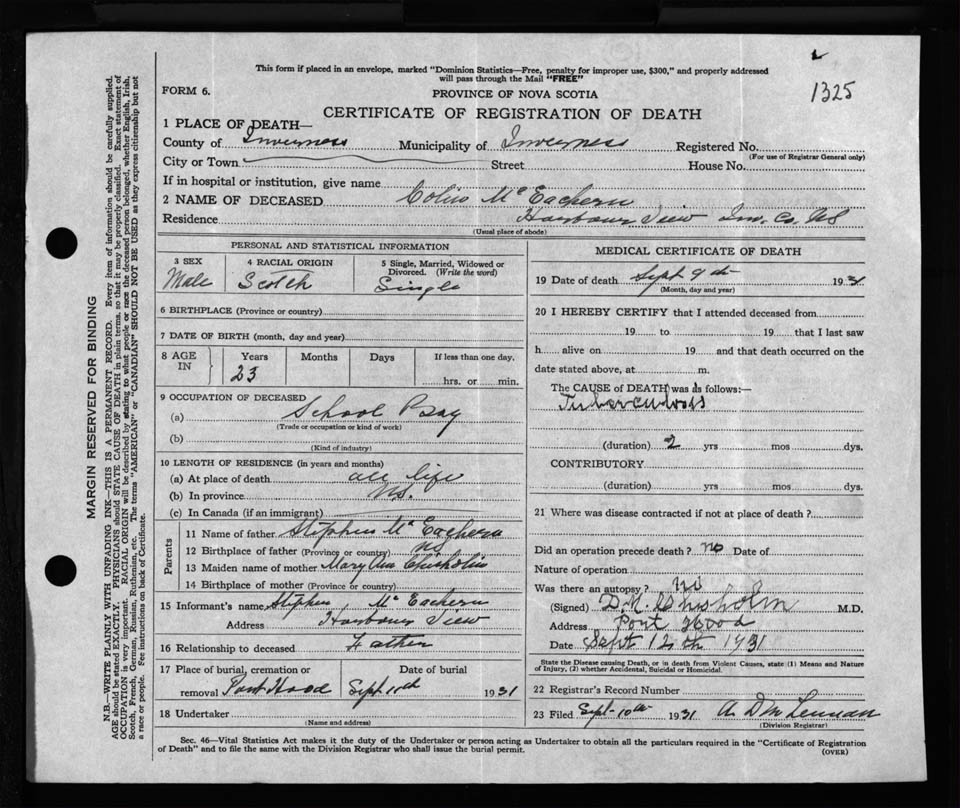 This form if placed in an envelope, marked "Dominion Statistics—Free, penalty for improper use, $300," and properly addressed
will pass through the Mail "FREE"
1325
FORM 6.
PROVINCE OF NOVA SCOTIA
CERTIFICATE OF REGISTRATION OF DEATH
1 PLACE OF DEATH—
County of Inverness Municipality of Inverness Registered No.
(For use of Registrar General only)
City or Town Street House No.
If in hospital or institution, give name
2 NAME OF DECEASED Colin McEachern
Residence Harbour View Inv. Co. NS
(Usual place of abode)
PERSONAL AND STATISTICAL INFORMATION
3 SEX 4 RACIAL ORIGIN 5 Single, Married, Widowed or
Divorced. (Write the word)
Male Scotch Single
6 BIRTHPLACE (Province or country)
7 DATE OF BIRTH (month, day and year)
8 AGE IN Years Months Days If less than one day,
23 hrs. or min.
9 OCCUPATION OF DECEASED
(a) School Boy
(Trade or occupation or kind of work)
(b)
(Kind of industry)
10 LENGTH OF RESIDENCE (in years and months)
(a) At place of death all life
(b) In province NS.
(c) In Canada (if an immigrant)
Parents
11 Name of father Stephen McEachern
12 Birthplace of father (Province or country) NS
13 Maiden name of mother Mary Ann Chisholm
14 Birthplace of mother (Province or country)
15 Informant's name Stephen McEachern
Address Harbour View
16 Relationship to deceased Father
17 Place of burial, cremation or Date of burial
removal Port Hood Sept 1931
18 Undertaker
(Name and address)
MEDICAL CERTIFICATE OF DEATH
19 Date of death Sept 9th 1931
(Month, day and year)
20 I HEREBY CERTIFY that I attended deceased from
19 to 19 that I last saw
h alive on 19 and that death occurred on the
date stated above, at m.
The CAUSE of DEATH was as follows:—
Tuberculosis
(duration) 2 yrs mos dys.
CONTRIBUTORY
(duration) yrs mos dys.
21 Where was disease contracted if not at place of death?
Did an operation precede death? no Date of
Nature of operation
Was there an autopsy? No
(Signed) Chisholm M.D.
Address Port Hood
Date Sept 12th 1931
State the Disease causing Death, or in death from Violent Causes, state (1) Means and Nature
of Injury, (2) whether Accidental, Suicidal or Homicidal.
22 Registrar's Record Number
23 Filed Sept 10th 1931 A. D McLennan
(Division Registrar)
Sec. 46—Vital Statistics Act makes it the duty of the Undertaker or person acting as Undertaker to obtain all the particulars required in the "Certificate of Registration
of Death" and to file the same with the Division Registrar who shall issue the burial permit.
(OVER)
MARGIN RESERVED FOR BINDING
N.B.—WRITE PLAINLY WITH UNFADING INK—THIS IS A PERMANENT RECORD. Every item of information should be carefully supplied.
AGE should be stated EXACTLY. PHYSICIANS should STATE CAUSE OF DEATH in plain terms, so that it may be properly classified. Exact statement of
OCCUPATION is very important. RACIAL ORIGIN will be described by stating to what people or race the deceased person belonged, whether English, Irish,
Scotch, French, German, Russian, Ruthenian, etc. The terms "AMERICAN" or "CANADIAN" SHOULD NOT BE USED as they express citizenship but not
a race or people. Fee instructions on back of Certificate.